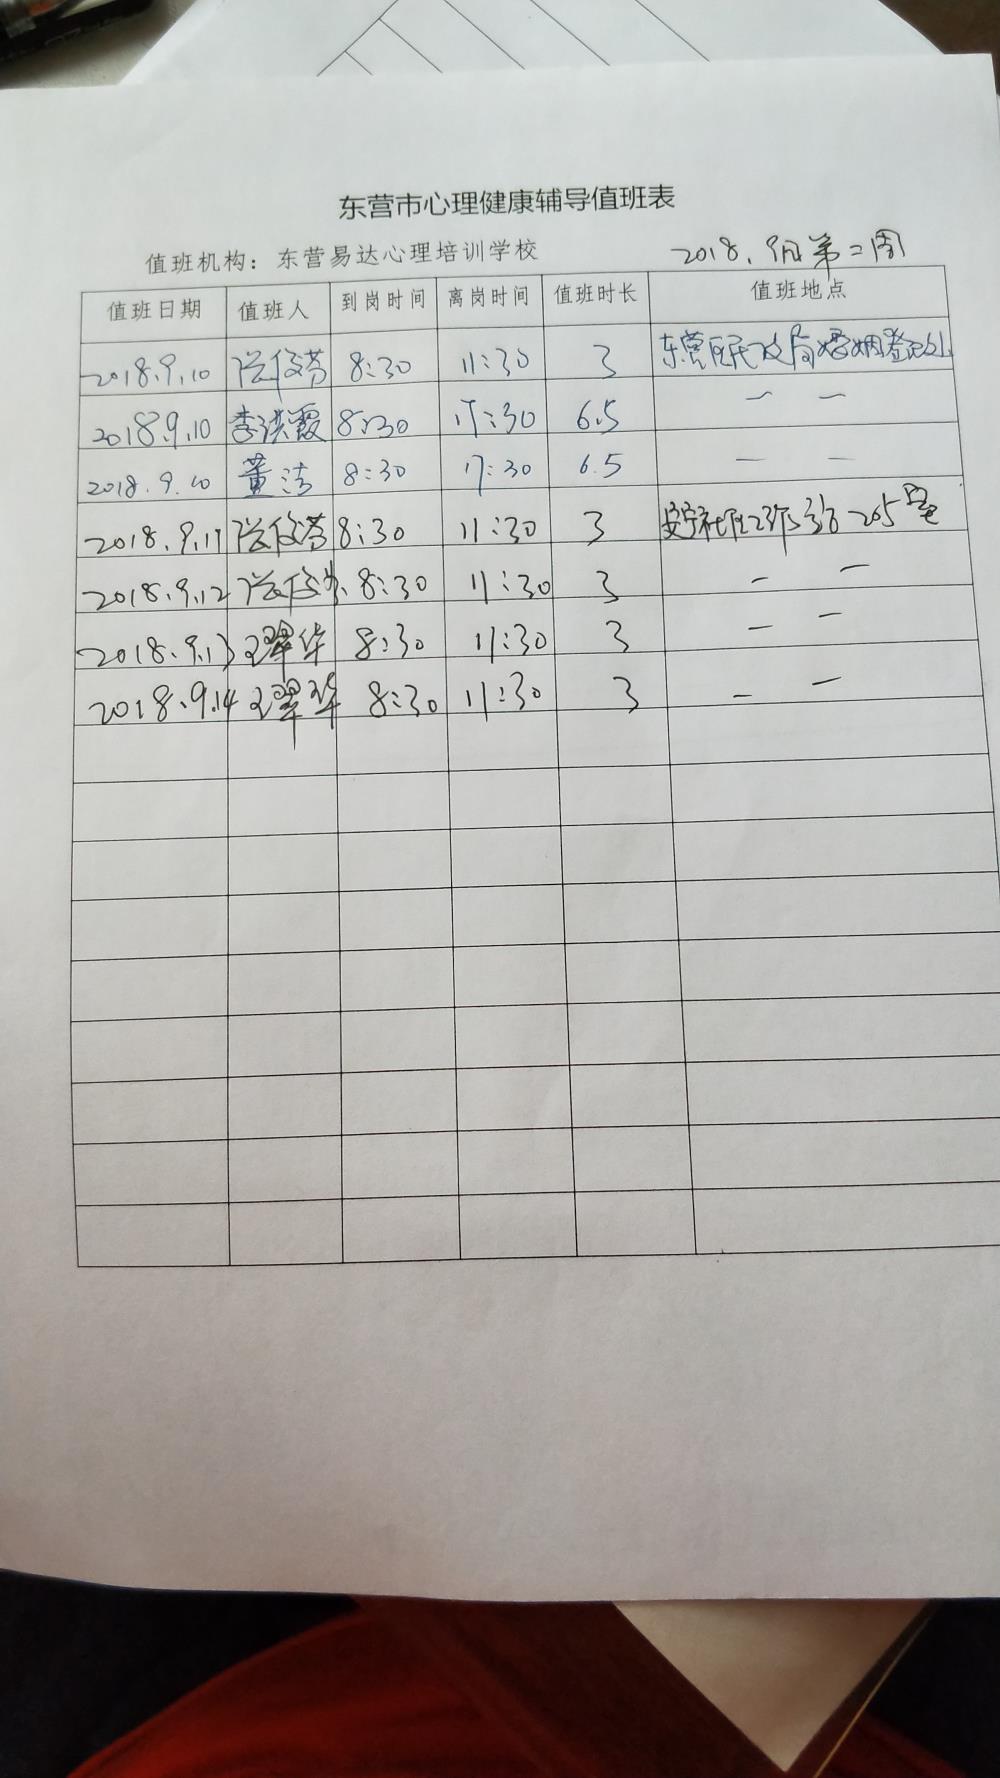 东营市心理健康辅导值班表
值班机构：东营易达心理培训学校 2018.9月第二周
值班日期 值班人 到岗时间 离岗时间 值班时长 值班地点
2018.9.10 8:30 11:30 3 东营区民政局婚姻登记处
2018.9.10 李洪霞 8:30 17:30 6.5 — —
2018.9.10 董洁 8:30 17:30 6.5 — —
2018.9.11 8:30 11:30 3 安宁社区工作站205室
2018.9.12 8:30 11:30 3 — —
2018.9.13 王翠华 8:30 11:30 3 — —
2018.9.14 王翠华 8:30 11:30 3 — —